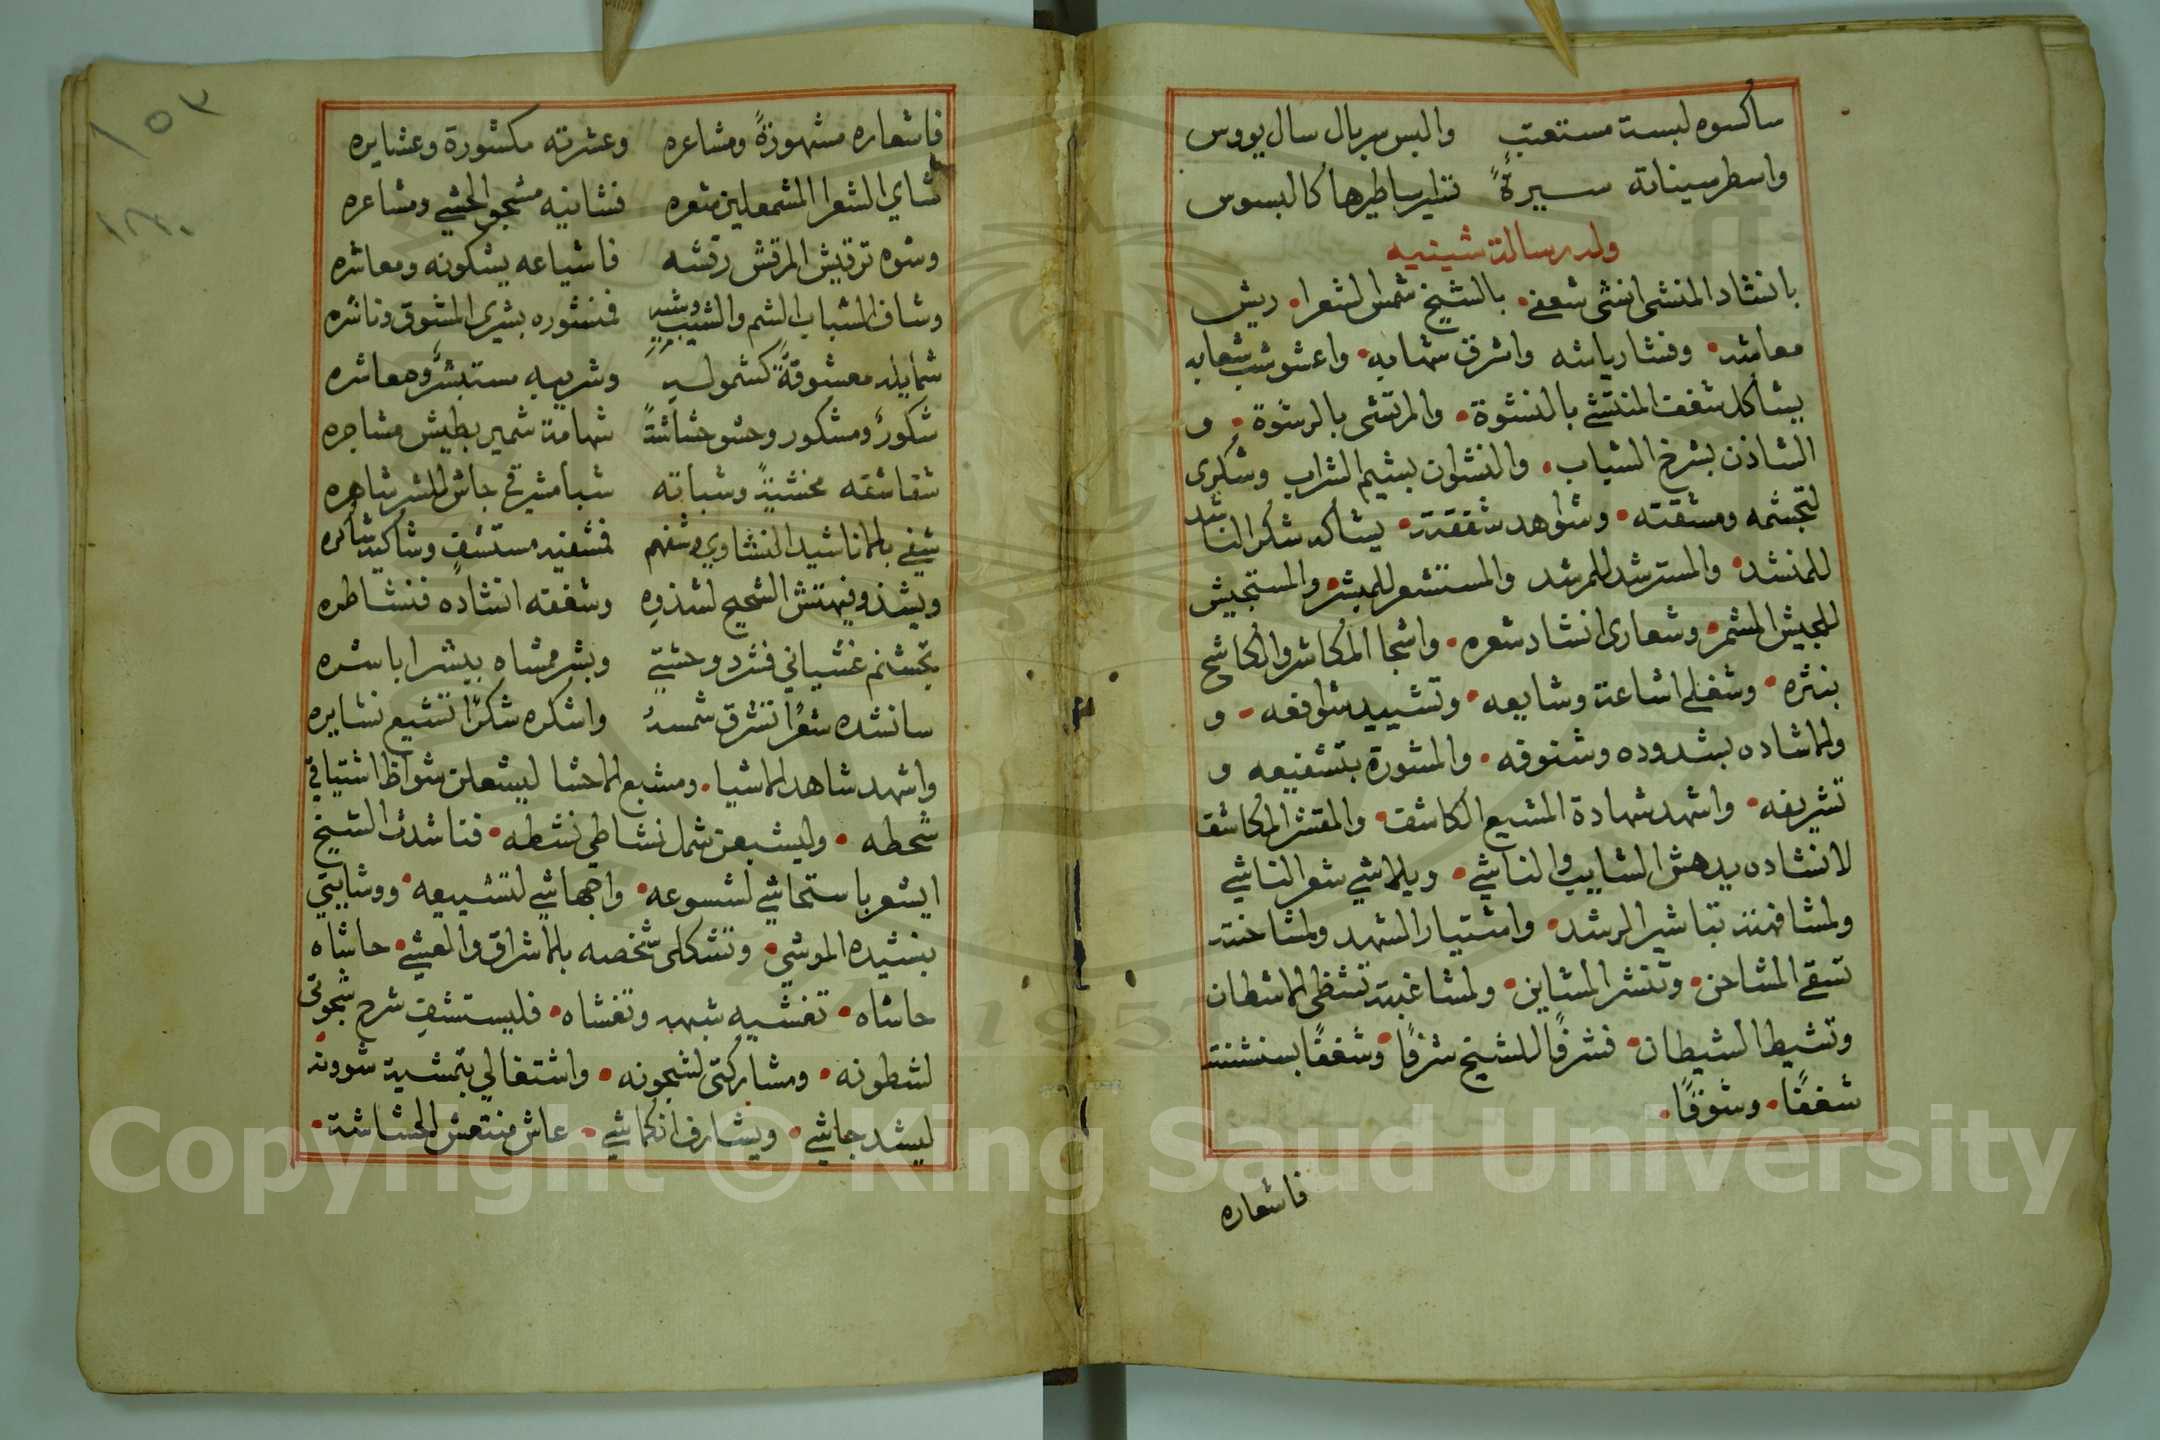 ساكسوه لبسة مستعتب والبس سربال سال يووس
واسطر سينانة سيرة تنلير ساطيرها كالبسوس
وله رسالة شينيه
بانشاد المنشى انشى شعفى بالشيخ شمس الشعرا ريش
معاشه وفشا رياشه واشرق شهابه واعشوشب شعابه
يشاكل شغف المنتشى بالنشوة والمرتشى بالرشوة و
الشاذن بشرخ الشباب والنشوان بشيم الشراب وشكرى
لتجشمه ومشقته وشواهد شفقته يشاكه شكر الناشد
للمنشد والمسترشد للمرشد والمستشعر للمبشر والمستجيش
للجيش المشمر وشعارى انشاد شعره واشجا المكاشر والكاشح
بنثره وشغلى اشاعة وشايعه وتشييد شوافعه و
والاشاده بشدوده وشنوفه والمشورة بتشفيعه و
تشريفه واشهد شهادة المشيع الكاشف والمقشر المكاشف
لانشاده يدهش الشايب والناشي ويلاشي شعر الناشي
ولمشافهته تباشير الرشد واشتيار الشهد ولمشاحنته
تسقى المشاحن وتنشر المشاين ولمشاغبته تشظى الاشطان
وتشيط الشيطان فشرفا للشيخ شرفا وشغفا بشنشنته
شغفا وشوقا
فاشعاره
فاشعاره مشهورة ومشاعره وعشرته مكشورة وعشايره
شاي الشعرا المشمعلين شعره فشانيه مشجو الحشي ومشاعره
وشوه ترقيش المرقش رقشه فاشياعه يشكونه ومعاشره
وشاف الشباب الشم والشيب وشيه فمنشوره بشرى المشوق وناشره
شمايله معشوقة كشموله وشريبه مستبشر ومعاشره
شكور ومشكور وحشو حشاشة شهامة شمير يطيش مشاجره
شقاشقه مخشية وشباته شبا مشرفى جاش للشر شاهره
شفى بالاناشيد النشاوي وشفهم فمشفيه مستشف وشاكيه شاكره
ويشدو فيهتش الشحيح لشذوه وشغفه انشاده فنشاطره
تجشم غشياني فشرد وحشتي وبشر ممشاه ببشر اباشره
سانشده شعرا تشرق شمسه واشكره شكرا تشيع نشايره
واشهد شاهد الاشيا ومشبع الاحشا ليشعلن شواظ اشتياقي
شحطه وليشبعن شمل نشاطي نشطه فناشدت الشيخ
ايشعر باستحاشي لشسوعه واجهاشي لتشييعه ووشايتي
بنشيده الموشي وتشكلى شخصه بالاشراق والعشي حاشاه
حاشاه تغشيه شبهه وتغشاه فليستشف شرح شجوني
لشطونه ومشاركتى لشجونه واشتغالي بتمشية شوونه
ليشد جاشي ويشارف انكماشي عاش منتعش الحشاشة
١٥٣